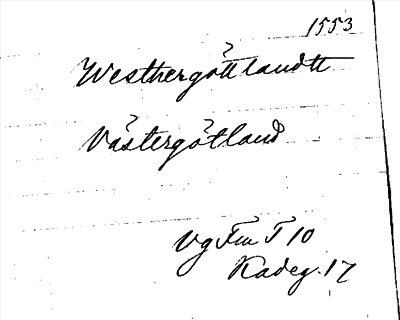 1553
Westhergöttlandtt
Västergötland
Vg Fm T 10
Kadeg. 17